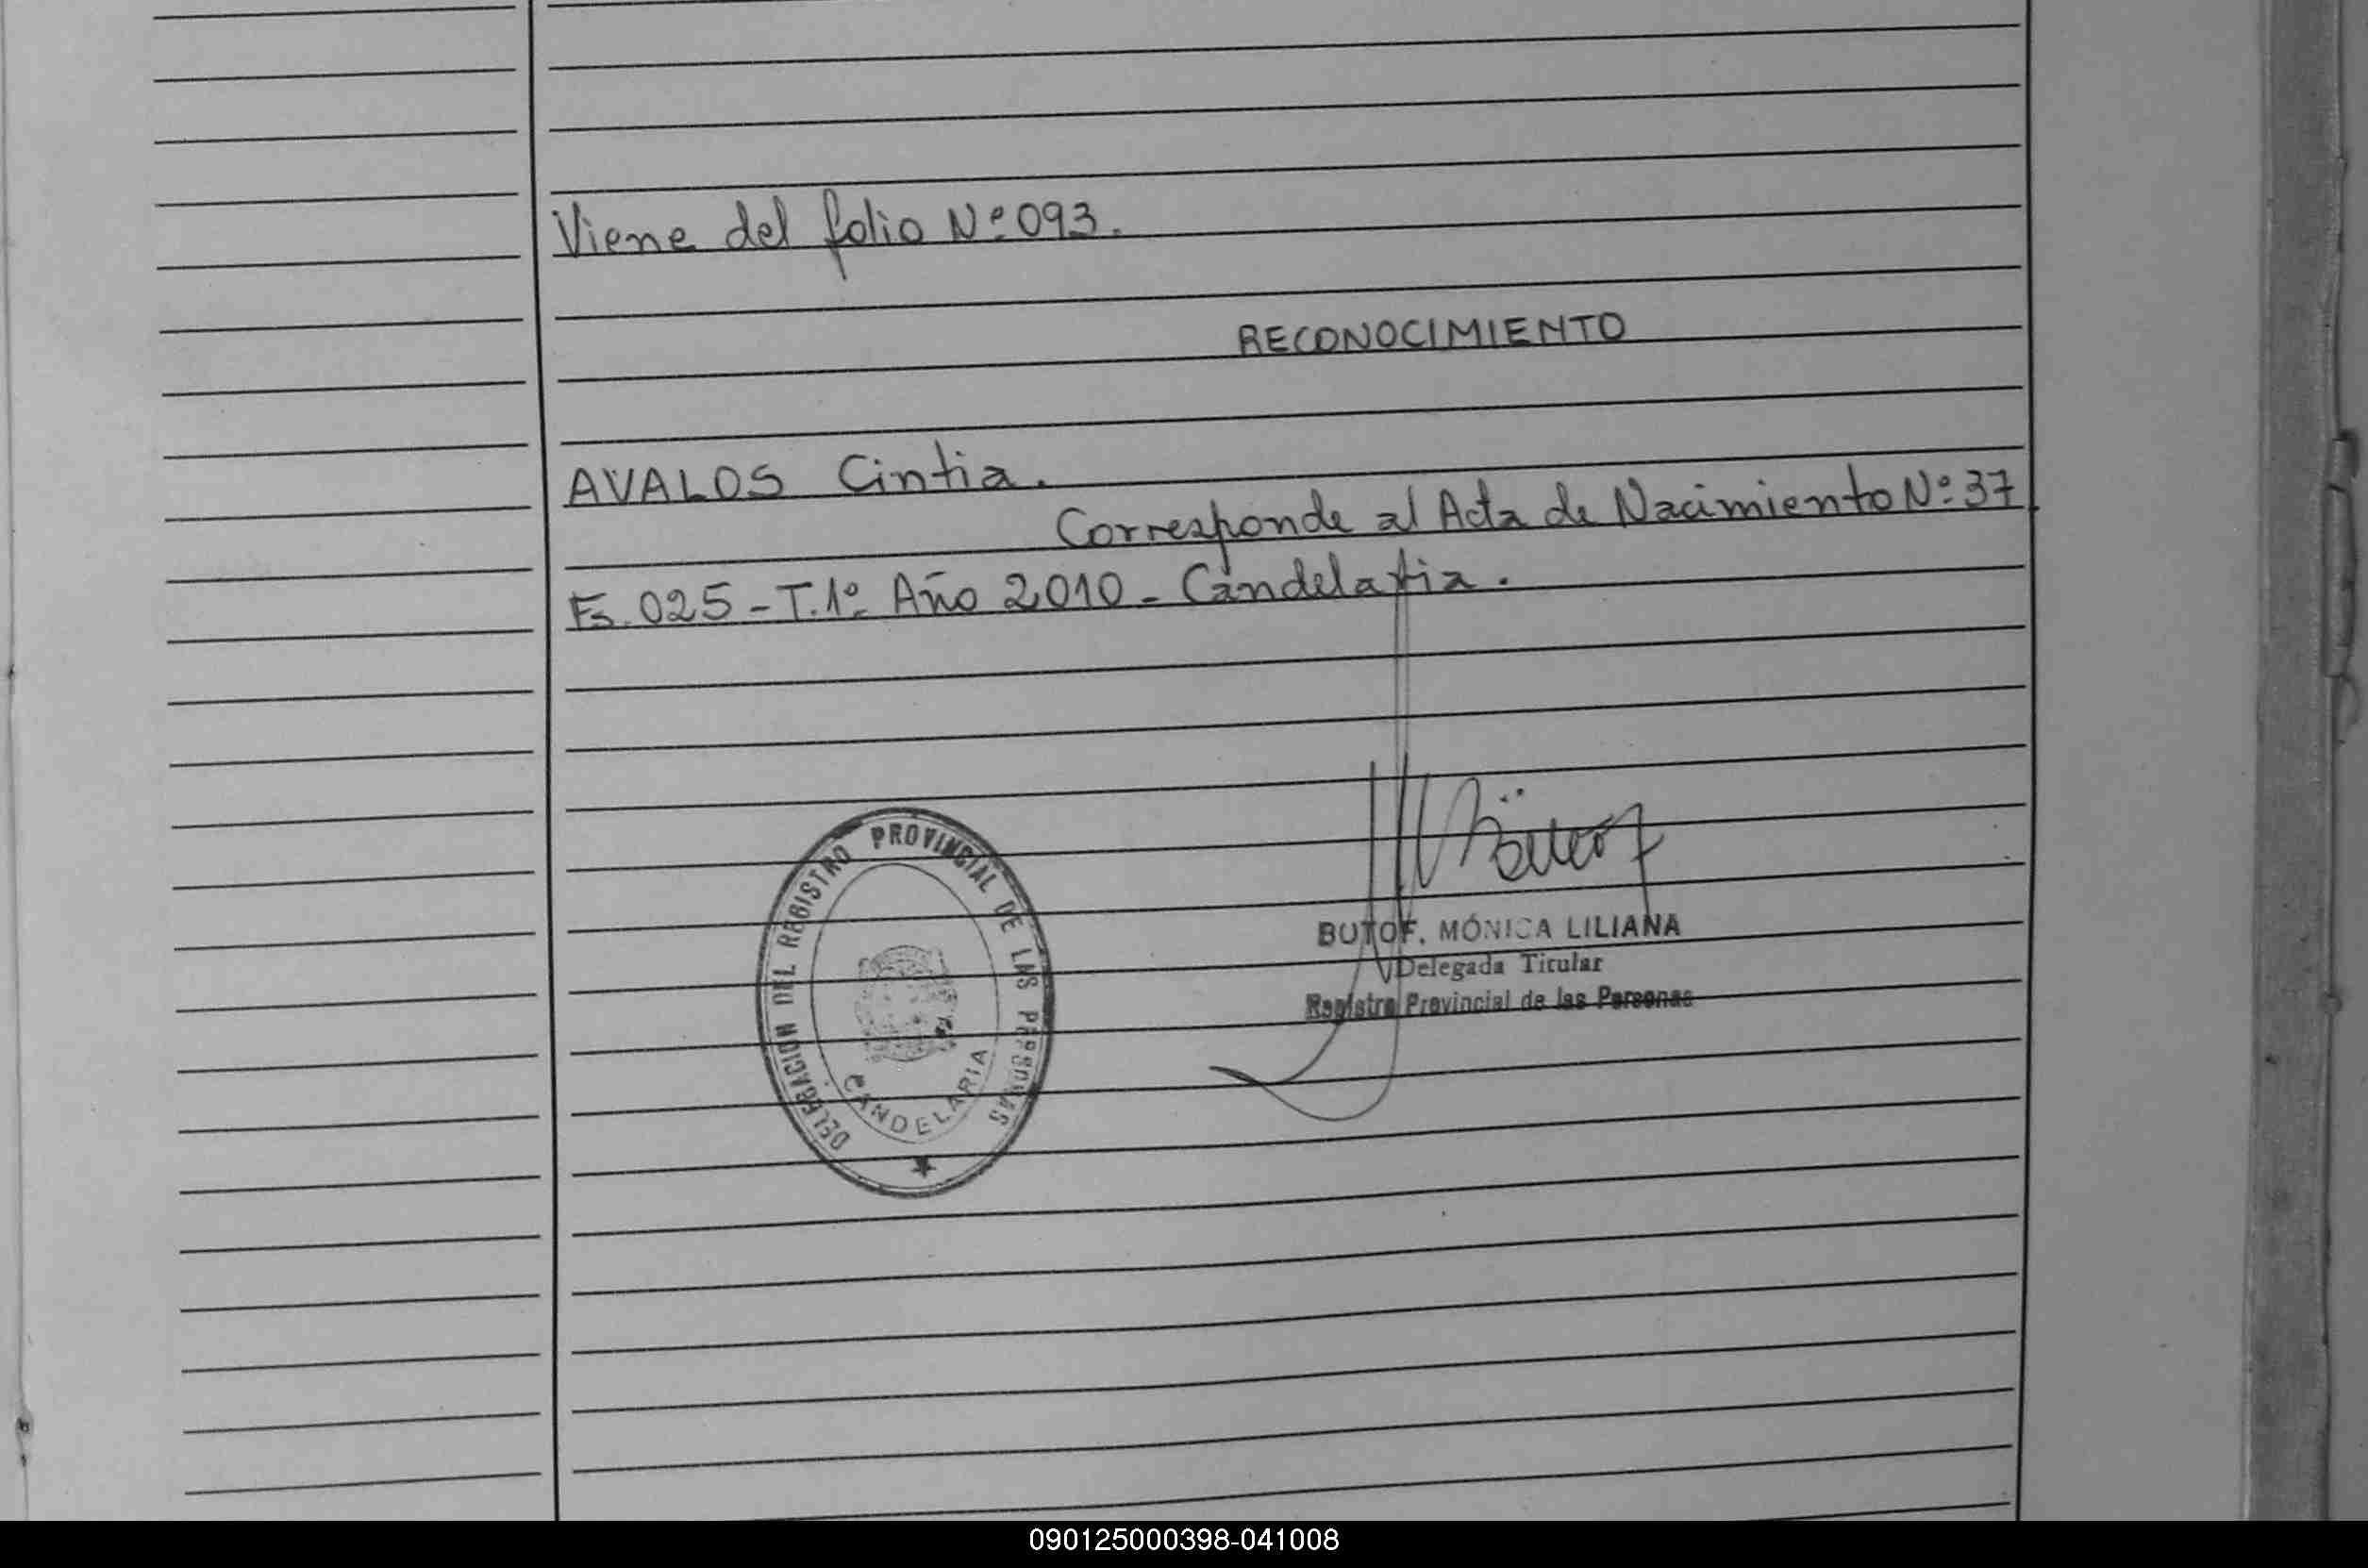 Viene del folio Nº 093.
RECONOCIMIENTO
AVALOS Cintia.
Corresponde al Acta de Nacimiento Nº 37
Fs. 025 - T. 1º Año 2010 - Candelaria.
DELEGACION DEL REGISTRO PROVINCIAL DE LAS PERSONAS
CANDELARIA
BUTOF, MÓNICA LILIANA
Delegada Titular
Registro Provincial de las Personas
090125000398-041008